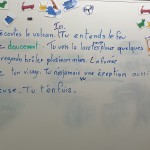 Ier.
écoutes le volcan. Tu entends le feu
doucement. Tu vois la lave quelques
regardes brûler plusieurs . La fumée
ton visage. Tu une éruption aussi
euse. Tu t'enfuis.